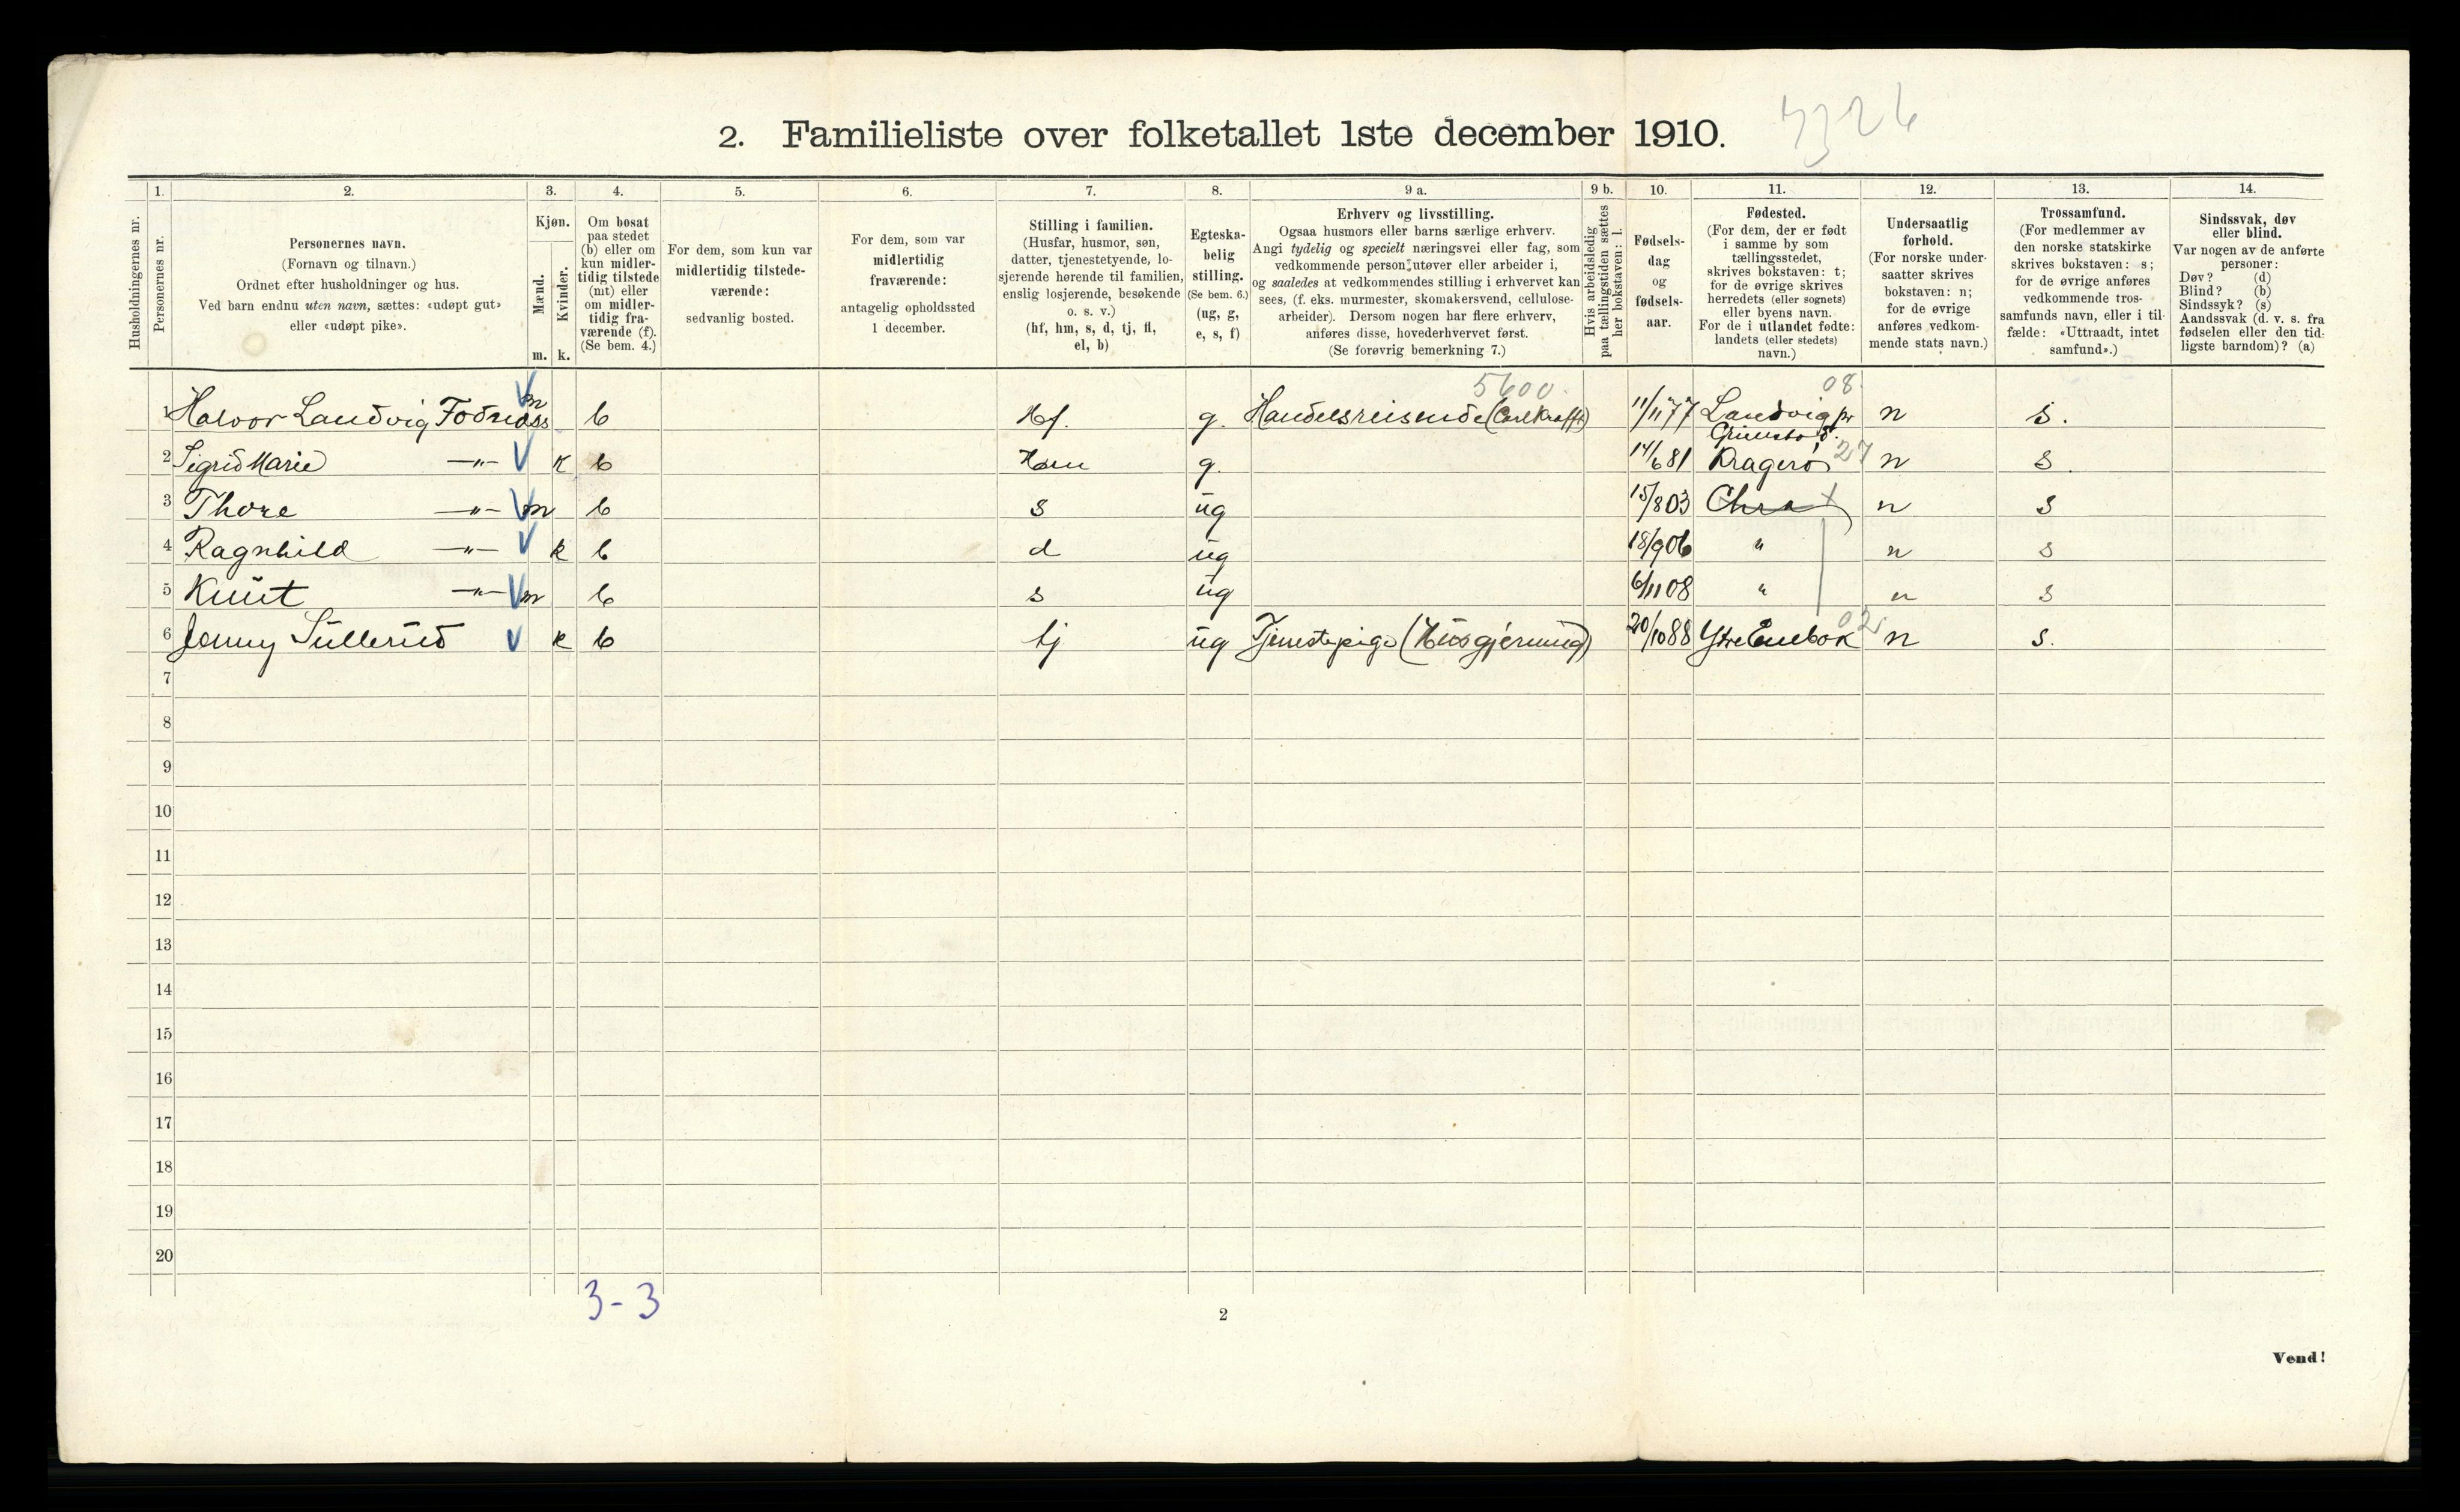 2. Familieliste over folketallet 1ste december 1910.
1. 2. 3. 4. 5. 6. 7. 8. 9 a. 9 b. 10. 11. 12. 13. 14.
Husholdningernes nr.
Personernes nr.
Personernes navn.
(Fornavn og tilnavn.)
Ordnet efter husholdninger og hus.
Ved barn endnu uten navn, sættes: «udøpt gut»
eller «udøpt pike».
Kjøn.
Mænd.
Kvinder.
m. k.
Om bosat
paa stedet
(b) eller om
kun midler-
tidig tilstede
(mt) eller
om midler-
tidig fra-
værende (f).
(Se bem. 4.)
For dem, som kun var
midlertidig tilstede-
værende:
sedvanlig bosted.
For dem, som var
midlertidig
fraværende:
antagelig opholdssted
1 december.
Stilling i familien.
(Husfar, husmor, søn,
datter, tjenestetyende, lo-
sjerende hørende til familien,
enslig losjerende, besøkende
o. s. v.)
(hf, hm, s, d, tj, fl,
el, b)
Egteska-
belig
stilling.
(Se bem. 6.)
(ug, g,
e, s, f)
Erhverv og livsstilling.
Ogsaa husmors eller barns særlige erhverv.
Angi tydelig og specielt næringsvei eller fag, som
vedkommende person utøver eller arbeider i,
og saaledes at vedkommendes stilling i erhvervet kan
sees, (f. eks. murmester, skomakersvend, cellulose-
arbeider). Dersom nogen har flere erhverv,
anføres disse, hovederhvervet først.
(Se forøvrig bemerkning 7.)
Hvis arbeidsledig
paa tællingstiden sættes
her bokstaven: l.
Fødsels-
dag
og
fødsels-
aar.
Fødested.
(For dem, der er født
i samme by som
tællingsstedet,
skrives bokstaven: t;
for de øvrige skrives
herredets (eller sognets)
eller byens navn.
For de i utlandet fødte:
landets (eller stedets)
navn.)
Undersaatlig
forhold.
(For norske under-
saatter skrives
bokstaven: n;
for de øvrige
anføres vedkom-
mende stats navn.)
Trossamfund.
(For medlemmer av
den norske statskirke
skrives bokstaven: s;
for de øvrige anføres
vedkommende tros-
samfunds navn, eller i til-
fælde: «Uttraadt, intet
samfund».)
Sindssvak, døv
eller blind.
Var nogen av de anførte
personer:
Døv? (d)
Blind? (b)
Sindssyk? (s)
Aandssvak (d. v. s. fra
fødselen eller den tid-
ligste barndom)? (a)
5600 08
1 Halvor Landvig Fodnæss m b Hf. g. Handelsreisende (Carl Krafft) 11/11 77 Landvig pr Grimstad. n s.
2 Sigrid Marie —"— k b Hm g. 14/6 81 Kragerø 27 n s.
3 Thore —"— m b s ug 15/8 03 Chra n s
4 Ragnhild —"— k b d ug 18/9 06 " n s
5 Knut —"— m b s ug 6/11 08 " n s
6 Jenny Sullerud k b tj ug Tjenestepige (Husgjerning) 20/10 88 Ytre Enebak 02 n s.
7
8
9
10
11
12
13
14
15
16
17
18
19
20
3 - 3
2
Vend!